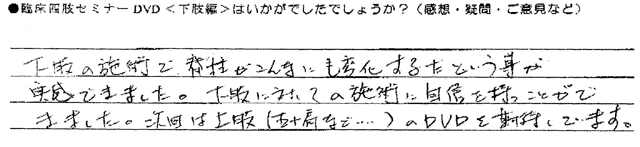 ●臨床四肢セミナーDVD＜下肢編＞はいかがでしたでしょうか？（感想・疑問・ご意見など）
下肢の施術で脊柱がこんなにも変化するだという事が
実感できました。下肢にたいての施術に自信を持つことがで
きました。次回は上肢（五十肩など…）のDVDを期待しています。